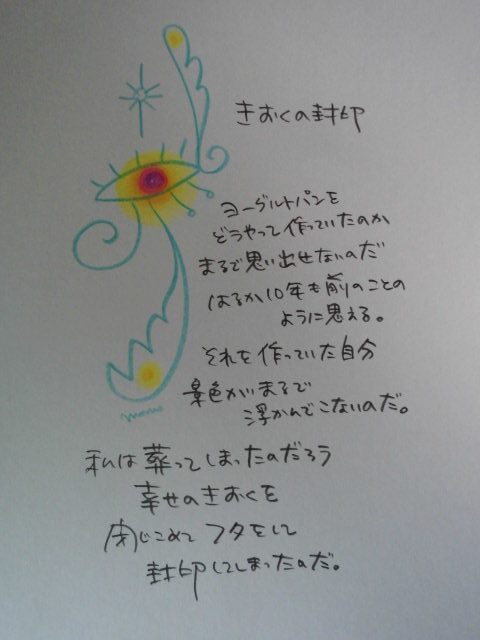 きおくの封印
ヨーグルトパンを
どうやって作っていたのか
まるで思い出せないのだ
はるか10年も前のことの
ように思える。
それを作っていた自分
景色がまるで
浮かんでこないのだ。
私は葬ってしまったのだろう
幸せのきおくを
閉じこめてフタをして
封印してしまったのだ。